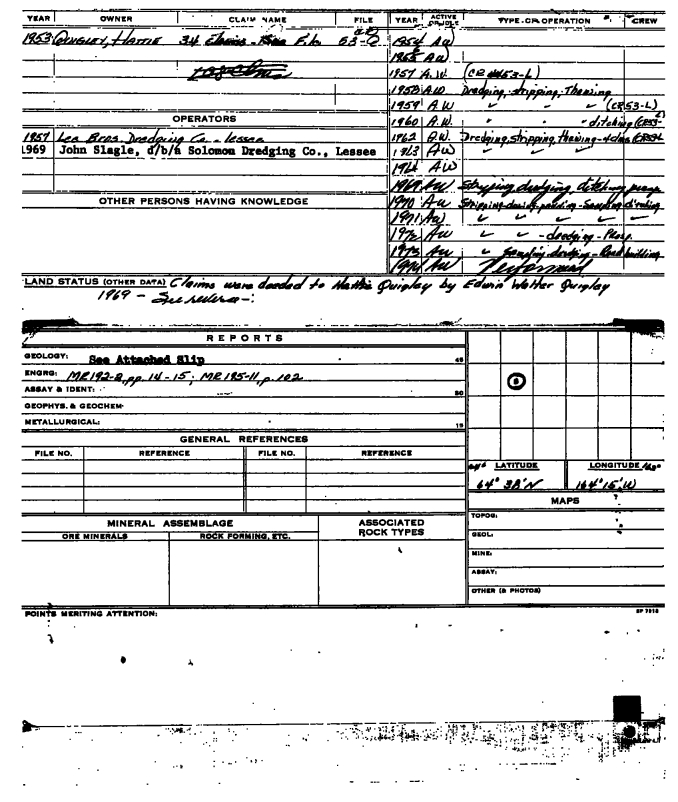 YEAR OWNER CLAIM NAME FILE YEAR ACTIVE OR IDLE TYPE OR OPERATION CREW
1953 QUIGLEY, HATTIE 34 Claims 53- 1954 AW
1955 AW
1957 A.W.
1958 AW Dredging, stripping, Thawing
1959 A.W (CR53-L)
OPERATORS 1960 A.W. ditching
1957 Lee Bros. Dredging Co. - lessee 1962 A.W. Dredging, stripping, thawing
1969 John Slagle, d/b/a Solomon Dredging Co., Lessee 1963 AW
1964 AW
1969 AW Stripping, dredging, ditching
OTHER PERSONS HAVING KNOWLEDGE 1970 AW
1971 AW
1972 AW - dredging -
1973 AW sampling - dredging - Road building
1974 AW
LAND STATUS (OTHER DATA) Claims were deeded to Hattie Quigley by Edwin Walter Quigley
1969 -
REPORTS
GEOLOGY: See Attached Slip
ENGRG: MR192-2, pp. 14-15; MR195-11, p. 102
ASSAY & IDENT:
GEOPHYS. & GEOCHEM:
METALLURGICAL:
GENERAL REFERENCES
FILE NO. REFERENCE FILE NO. REFERENCE
LATITUDE LONGITUDE
64° 38'N 164° 15'W
MAPS
MINERAL ASSEMBLAGE ASSOCIATED ROCK TYPES TOPOG:
ORE MINERALS ROCK FORMING, ETC. GEOL:
MINE:
ASSAY:
OTHER (& PHOTOS)
POINTS MERITING ATTENTION: